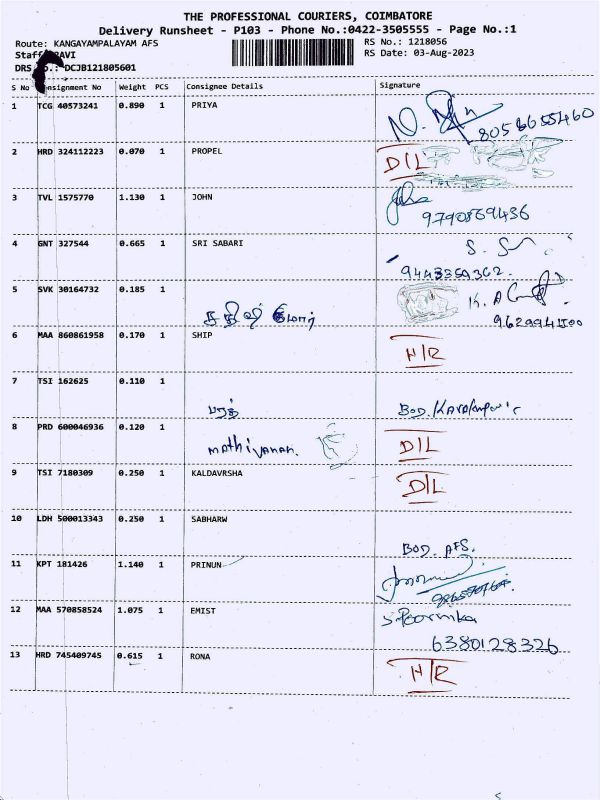 THE PROFESSIONAL COURIERS, COIMBATORE
Delivery Runsheet - P103 - Phone No.:0422-3505555 - Page No.:1
Route: KANGAYAMPALAYAM AFS RS No.: 1218056
RAVI RS Date: 03-Aug-2023
DRS DCJB121805601
S No Consignment No Weight PCS Consignee Details Signature
1 TCG 40573241 0.890 1 PRIYA
2 HRD 324112223 0.070 1 PROPEL D/L
3 TVL 1575770 1.130 1 JOHN
9790869436
4 GNT 327544 0.665 1 SRI SABARI
9443359362.
5 SVK 30164732 0.185 1
9629941500
6 MAA 860861958 0.170 1 SHIP H/R
7 TSI 162625 0.110 1
பரத் BOD.
8 PRD 600046936 0.120 1
mathivanan. D/L
9 TSI 7180309 0.250 1 KALDAVRSHA D/L
10 LDH 500013343 0.250 1 SABHARW
BOD. AFS.
11 KPT 181426 1.140 1 PRINUN
12 MAA 570858524 1.075 1 EMIST S.Poornika
6380128326
13 HRD 745409745 0.615 1 RONA H/R